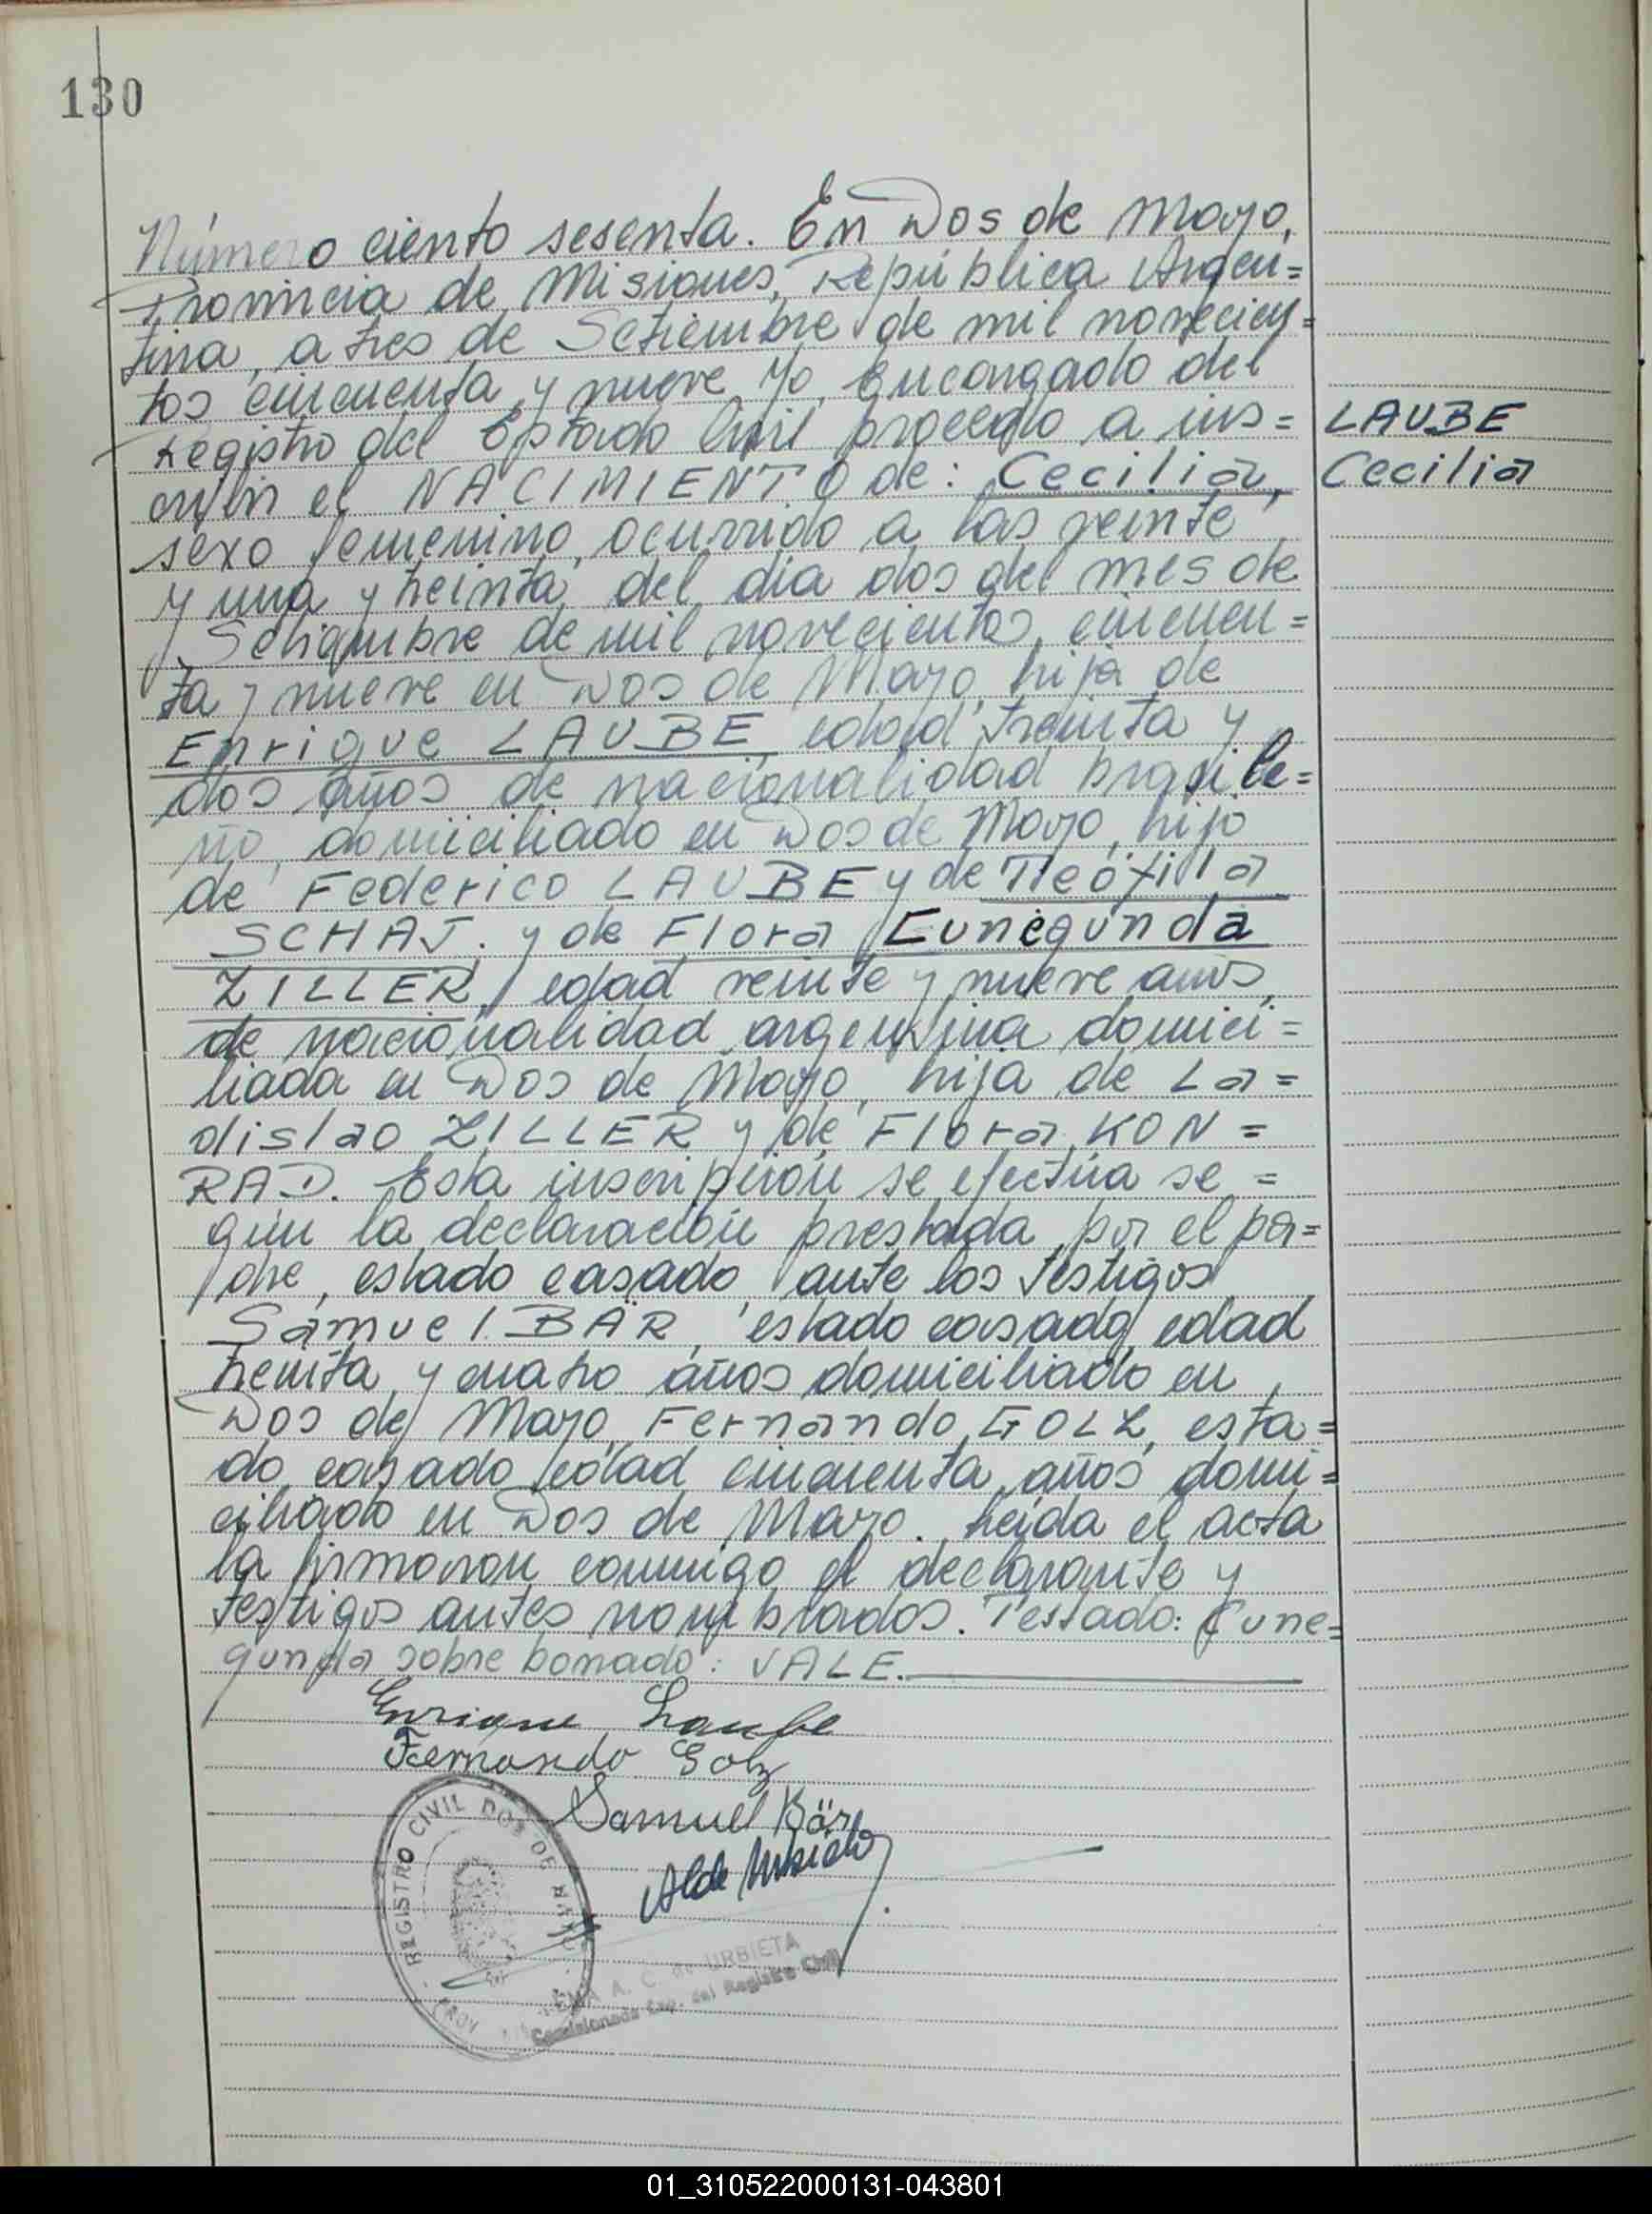 130
Número ciento sesenta. En Dos de Mayo,
Provincia de Misiones, República Argen=
tina, a tres de Setiembre de mil novecien=
tos cincuenta y nueve Yo, Encargado del
Registro del Estado Civil procedo a ins=
LAUBE
cribir el NACIMIENTO de: Cecilia,
Cecilia
sexo femenino, ocurrido a las veinte
y una y treinta del día dos del mes de
Setiembre de mil novecientos cincuen=
ta y nueve en Dos de Mayo, hija de
Enrique LAUBE, edad treinta y
dos años de nacionalidad brasile=
ño, domiciliado en Dos de Mayo, hijo
de Federico LAUBE y de Teófila
SCHAJ. y de Flora Cunegunda
ZILLER, edad veinte y nueve años,
de nacionalidad argentina domici=
liada en Dos de Mayo, hija de La=
dislao ZILLER y de Flora KON=
RAD. Esta inscripción se efectúa se=
gún la declaración prestada por el pa=
dre, estado casado, ante los testigos
Samuel BÄR, estado casado, edad
treinta y cuatro años domiciliado en
Dos de Mayo, Fernando GOLZ, esta=
do casado edad cincuenta años domi=
ciliado en Dos de Mayo. Leída el acta
la firmaron conmigo el declarante y
testigos antes nombrados. Testado: Cune=
gunda sobre borrado: VALE.
Enrique Laube
Fernando Golz
Samuel Bär
REGISTRO CIVIL DOS DE MAYO
A. C. de URBIETA
Comisionada Esp. del Registro Civil
01_310522000131-043801